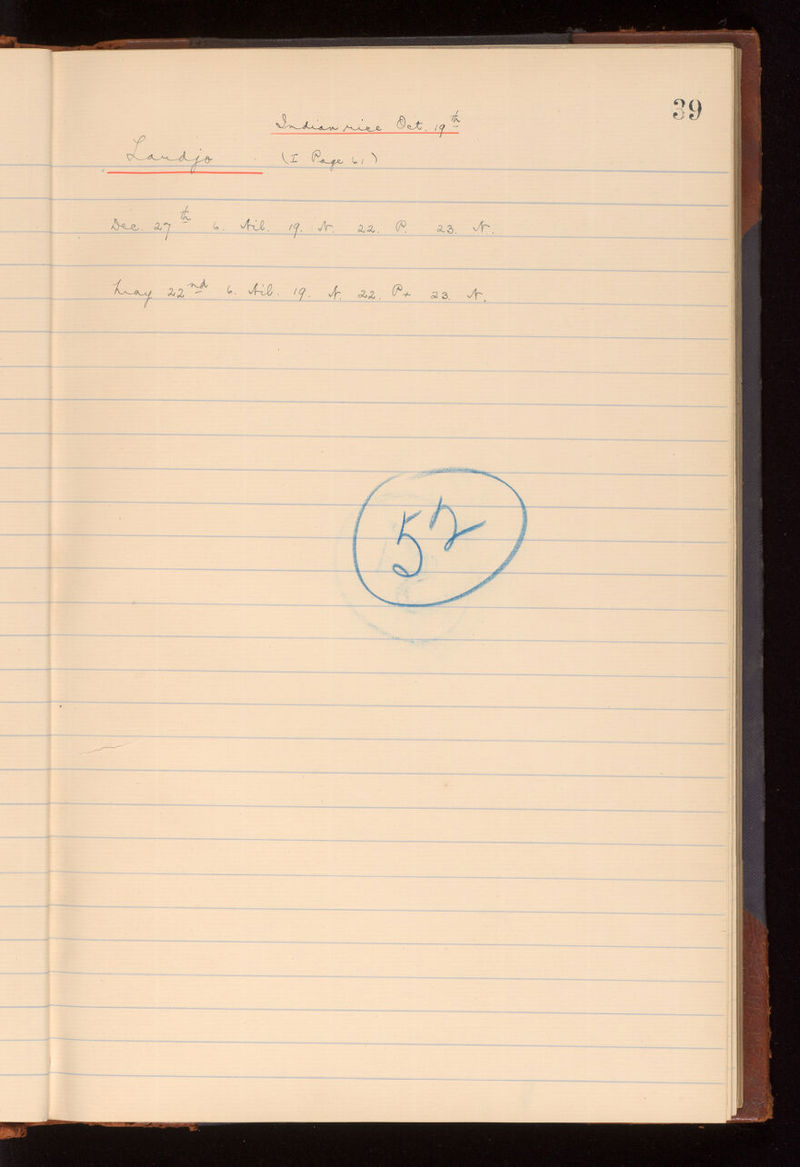 39
Indian rice Oct. 19th
Laudjo (I Page 61)
Dec. 27th 6. Nil. 19. N. 22. P. 23. N.
May 22nd 6. Nil. 19. N. 22. P+ 23. N.
52